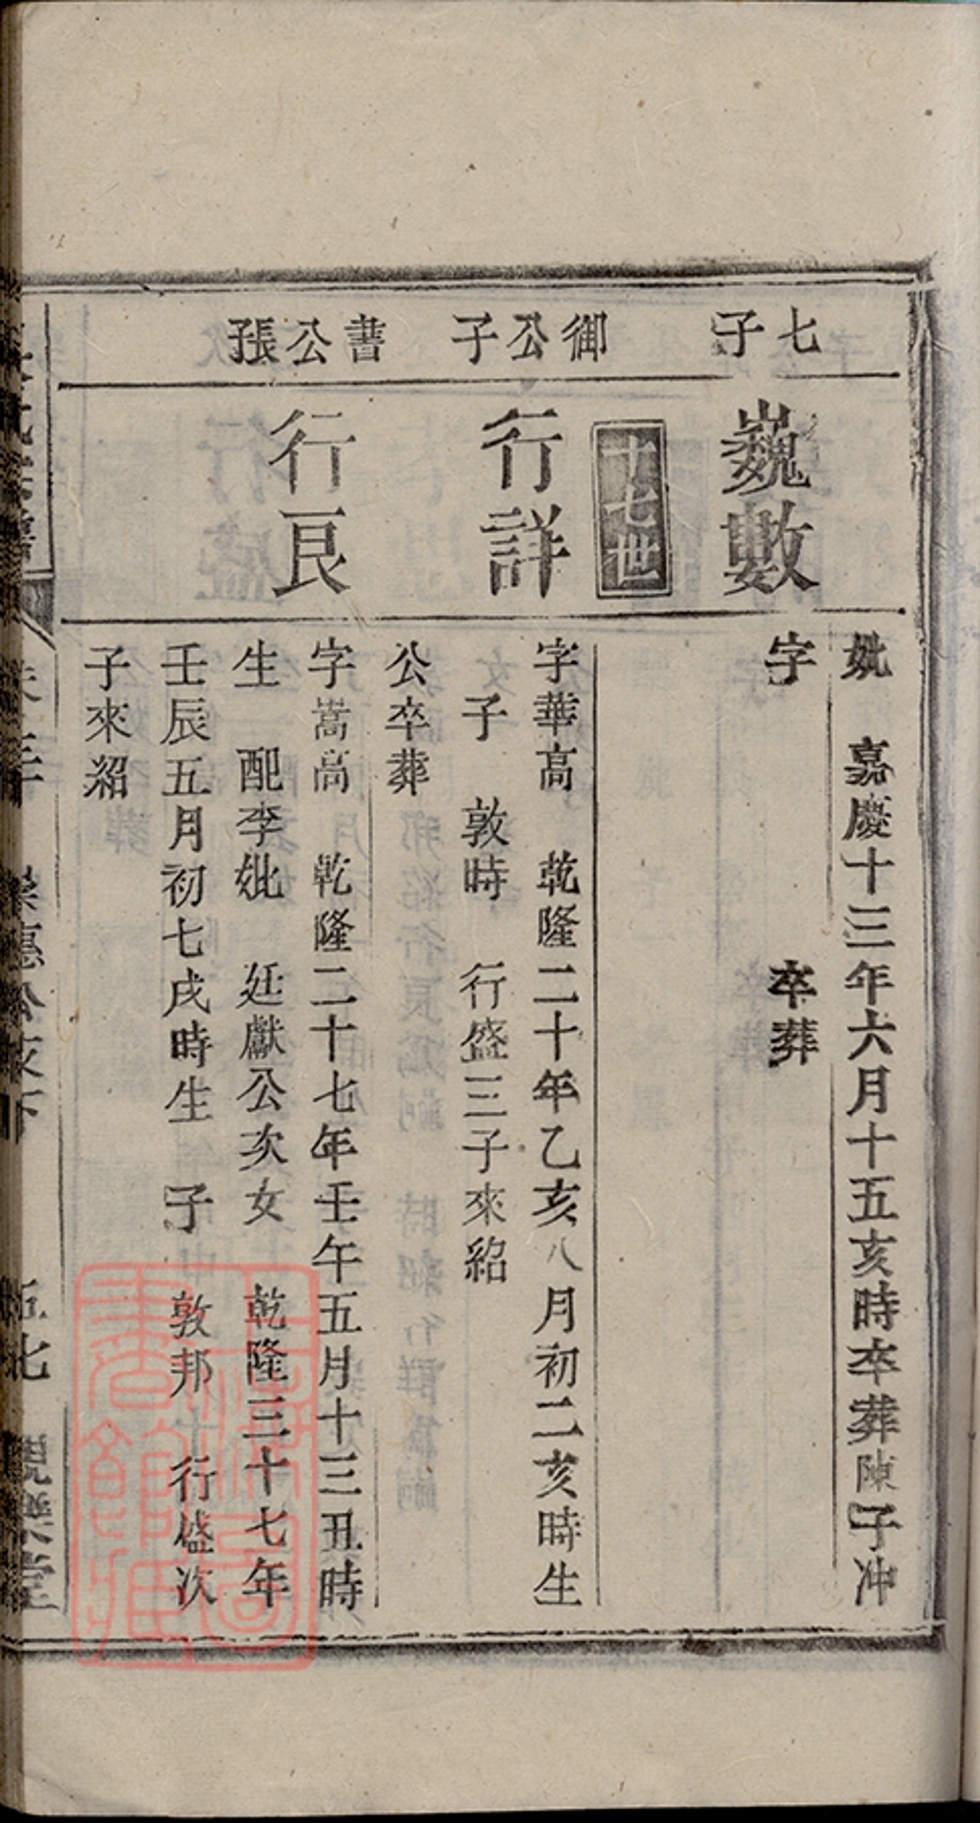 七子
巍數
妣　嘉慶十三年六月十五亥時卒葬陳子冲
字　卒葬
十七世
御公子
行詳
字華高　乾隆二十年乙亥八月初二亥時生
子　敦時　行盛三子來紹
公卒葬
書公張
行良
字嵩高　乾隆二十七年壬午五月十三丑時
生　配李妣　廷獻公次女　乾隆三十七年
壬辰五月初七戌時生　子　敦邦　行盛次
子來紹
親樂堂